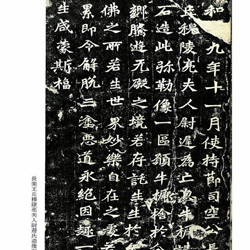 和 九年十一月使持節司空公長
丘穆陵亮夫人尉遲為亡息牛橛
石造此彌勒像一區願牛橛捨於
鄉騰遊無礙之境若存託生生於
佛之所若生世界妙樂自在之處
累即令解脫三塗惡道永絕因趣一
生咸蒙斯福
長樂王丘穆陵亮夫人尉遲氏造像